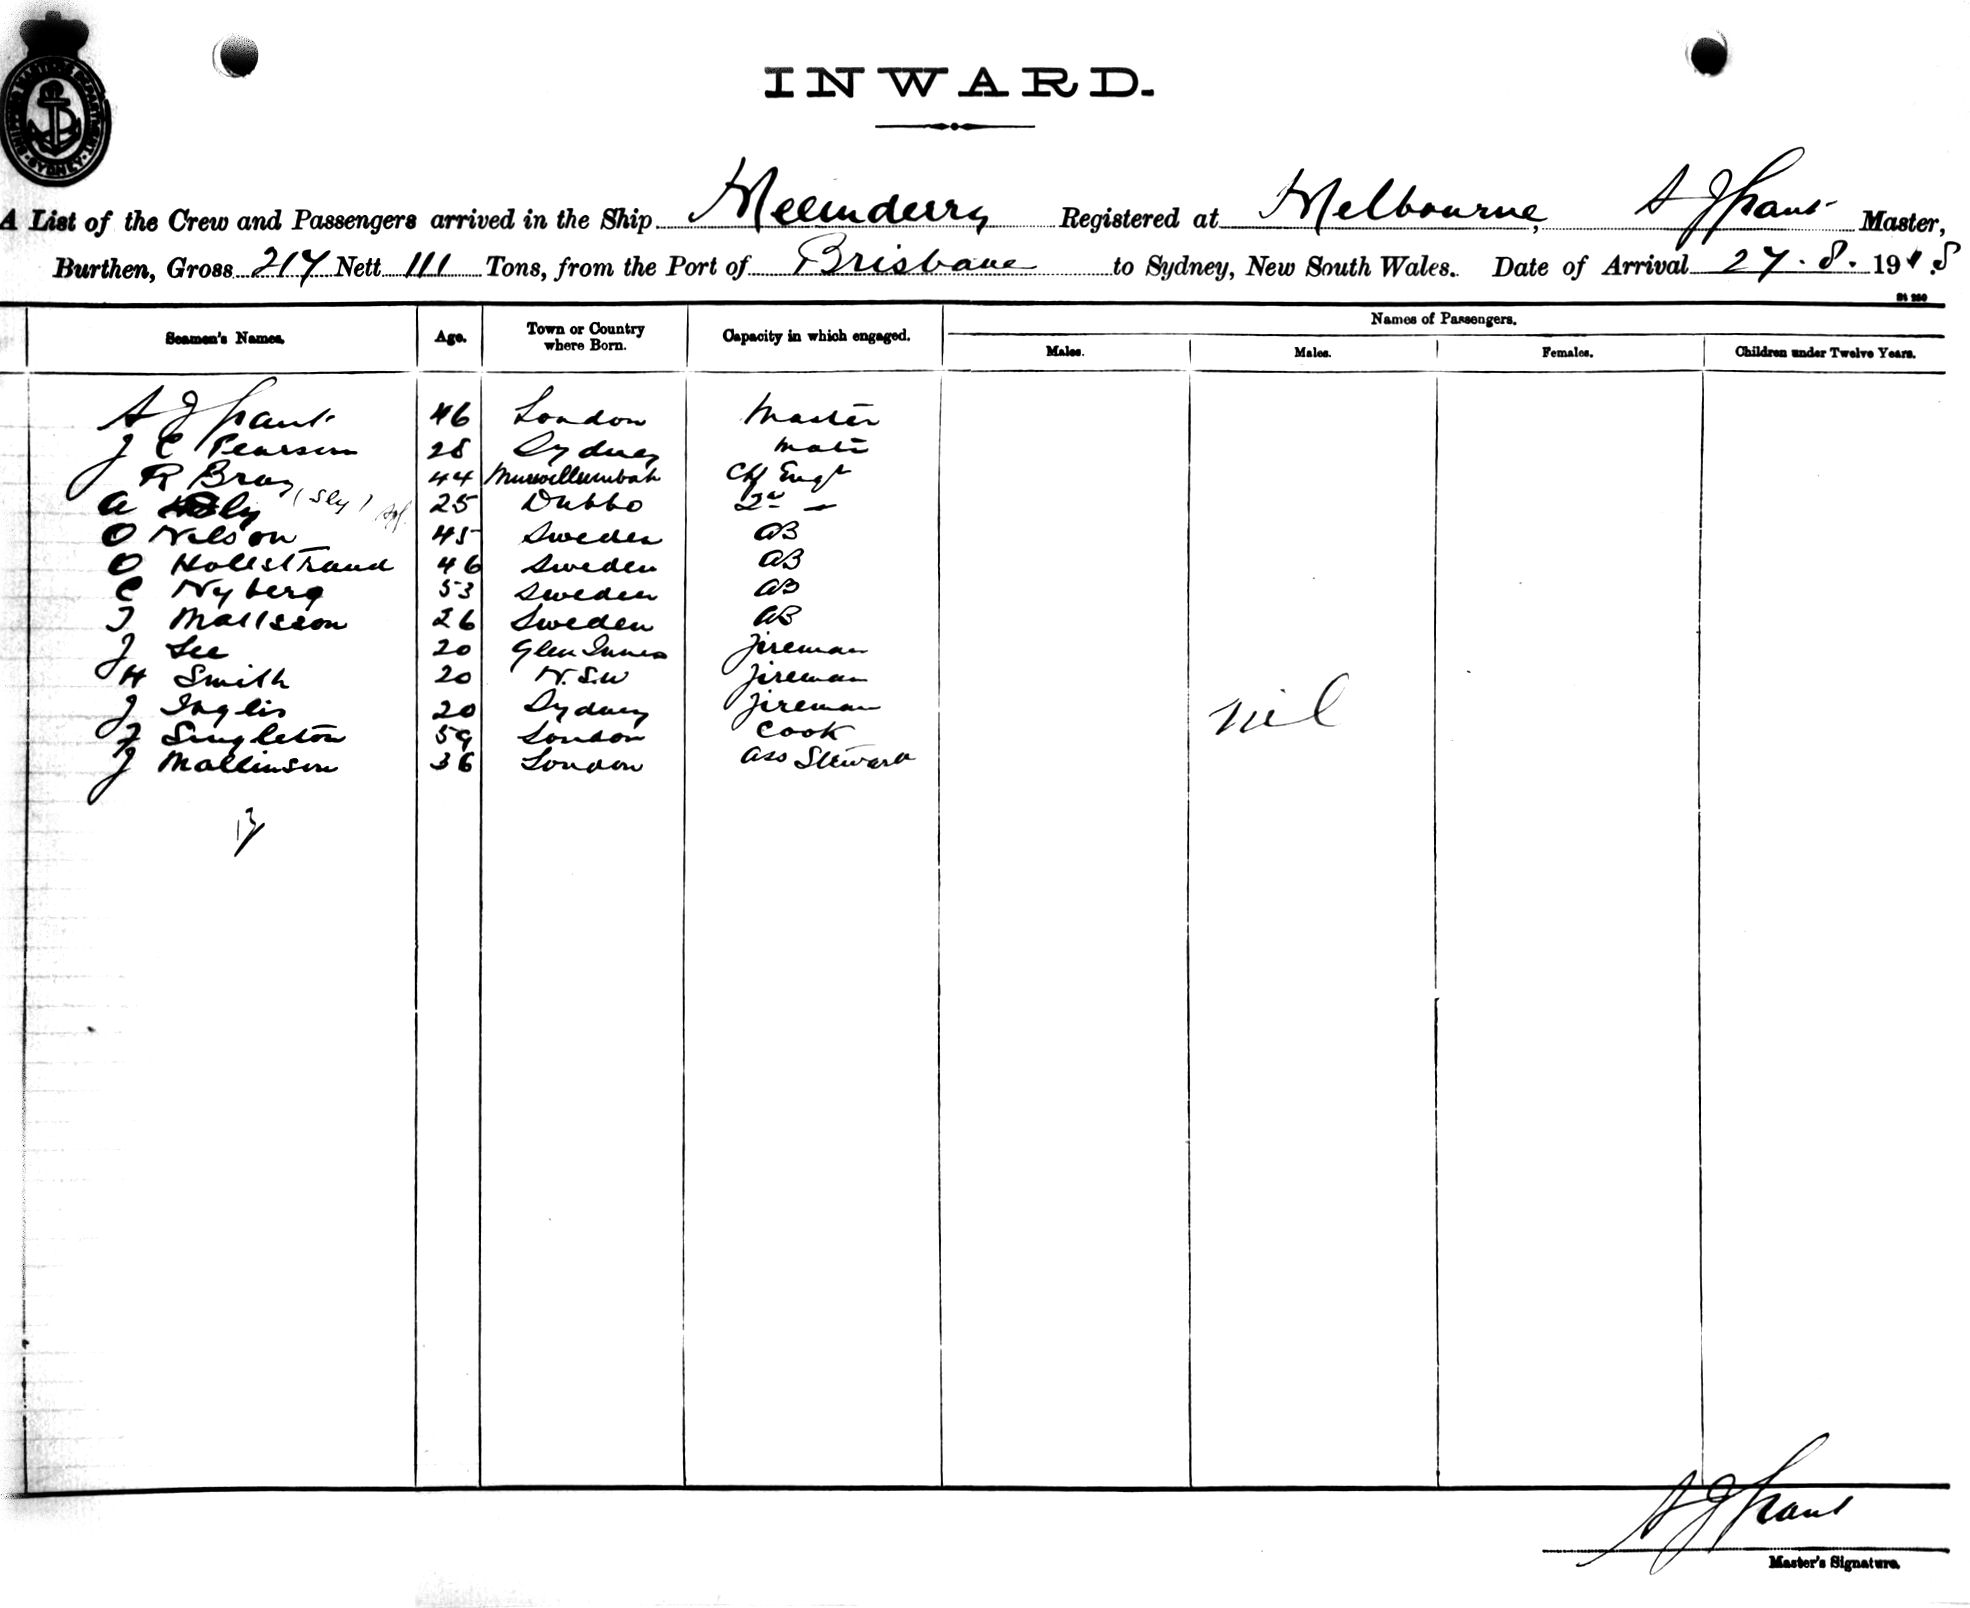 SHIPPING MASTER'S DEPARTMENT SYDNEY
INWARD.
A List of the Crew and Passengers arrived in the Ship Meeinderry Registered at Melbourne, A J Grant Master,
Burthen, Gross 217 Nett 111 Tons, from the Port of Brisbane to Sydney, New South Wales. Date of Arrival 27.8.1918
Seamen's Names. Age. Town or Country where Born. Capacity in which engaged. Names of Passengers.
Males. Males. Females. Children under Twelve Years.
A J Grant 46 London Master
J C Pearson 28 Sydney Mate
R Bray 44 Murwillumbah Chf Engr
A Sly (Sly) 25 Dubbo 2nd —
O Nelson 45 Sweden AB
O Hollstrand 46 Sweden AB
C Nyberg 53 Sweden AB
T Mattsson 26 Sweden AB
J Lee 20 Glen Innes Fireman
H Smith 20 N.S.W Fireman
J Inglis 20 Sydney Fireman
F Singleton 59 London Cook
J Mallinson 36 London Ass Steward
Nil
13
A J Grant
Master's Signature.